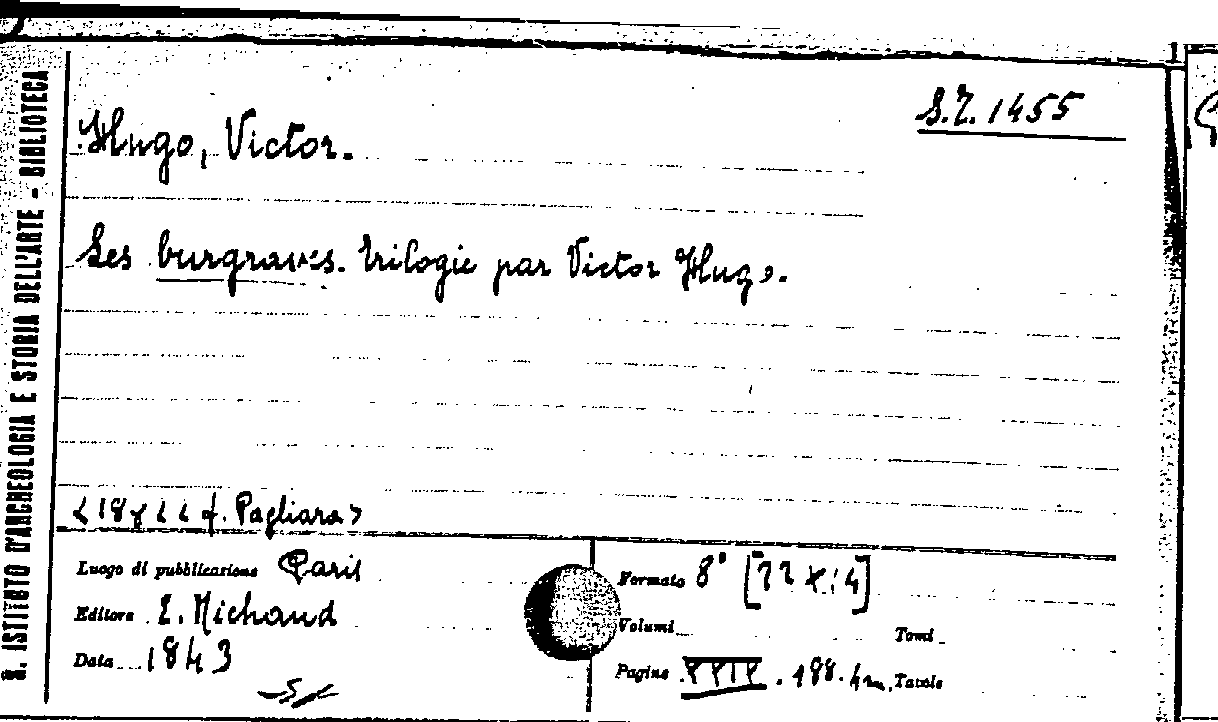 R. ISTITUTO D'ARCHEOLOGIA E STORIA DELL'ARTE - BIBLIOTECA
S.Z. 1455
Hugo, Victor.
Les burgraves. Trilogie par Victor Hugo.
f. Pagliara>
Luogo di pubblicazione Paris
Formato 8°
Editore E. Michaud
Volumi Tomi
Data 1843
Pagine 188. Tavole